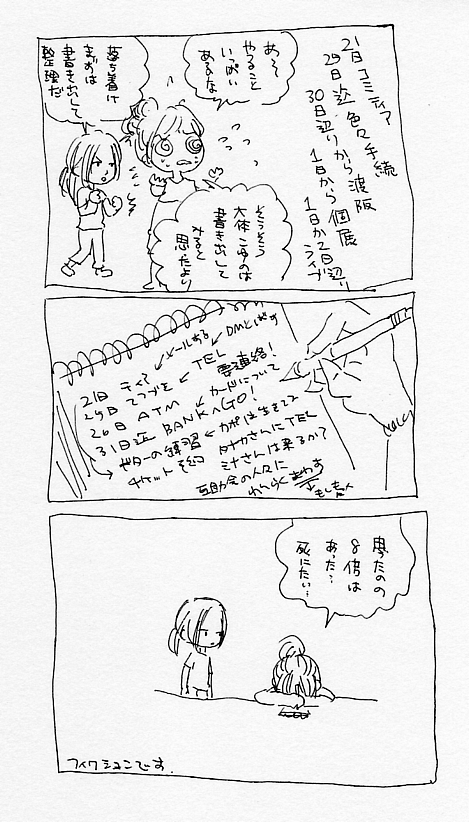 21日コミティア
29日迄色々手続
30日辺りから渡阪
1日から個展
1日か2日辺り
ライブ
あ〜
やること
いっぱい
あるな
落ち着け
まずは
書き出して
整理だ
そうそう
大体こゆのは
書き出して
みると
思たより
21日 ティア メールする DMとばす
29日 てつづき TEL 要連絡!
26日 ATM カードについて
31日迄 BANKへGO!
ギターの練習
チケット予約 タナカさんにTEL
ミナさんは来るか?
互助会の人々に
れんらくまわす
思ったのの
8倍は
あった?
死にたい…
フィクションです.